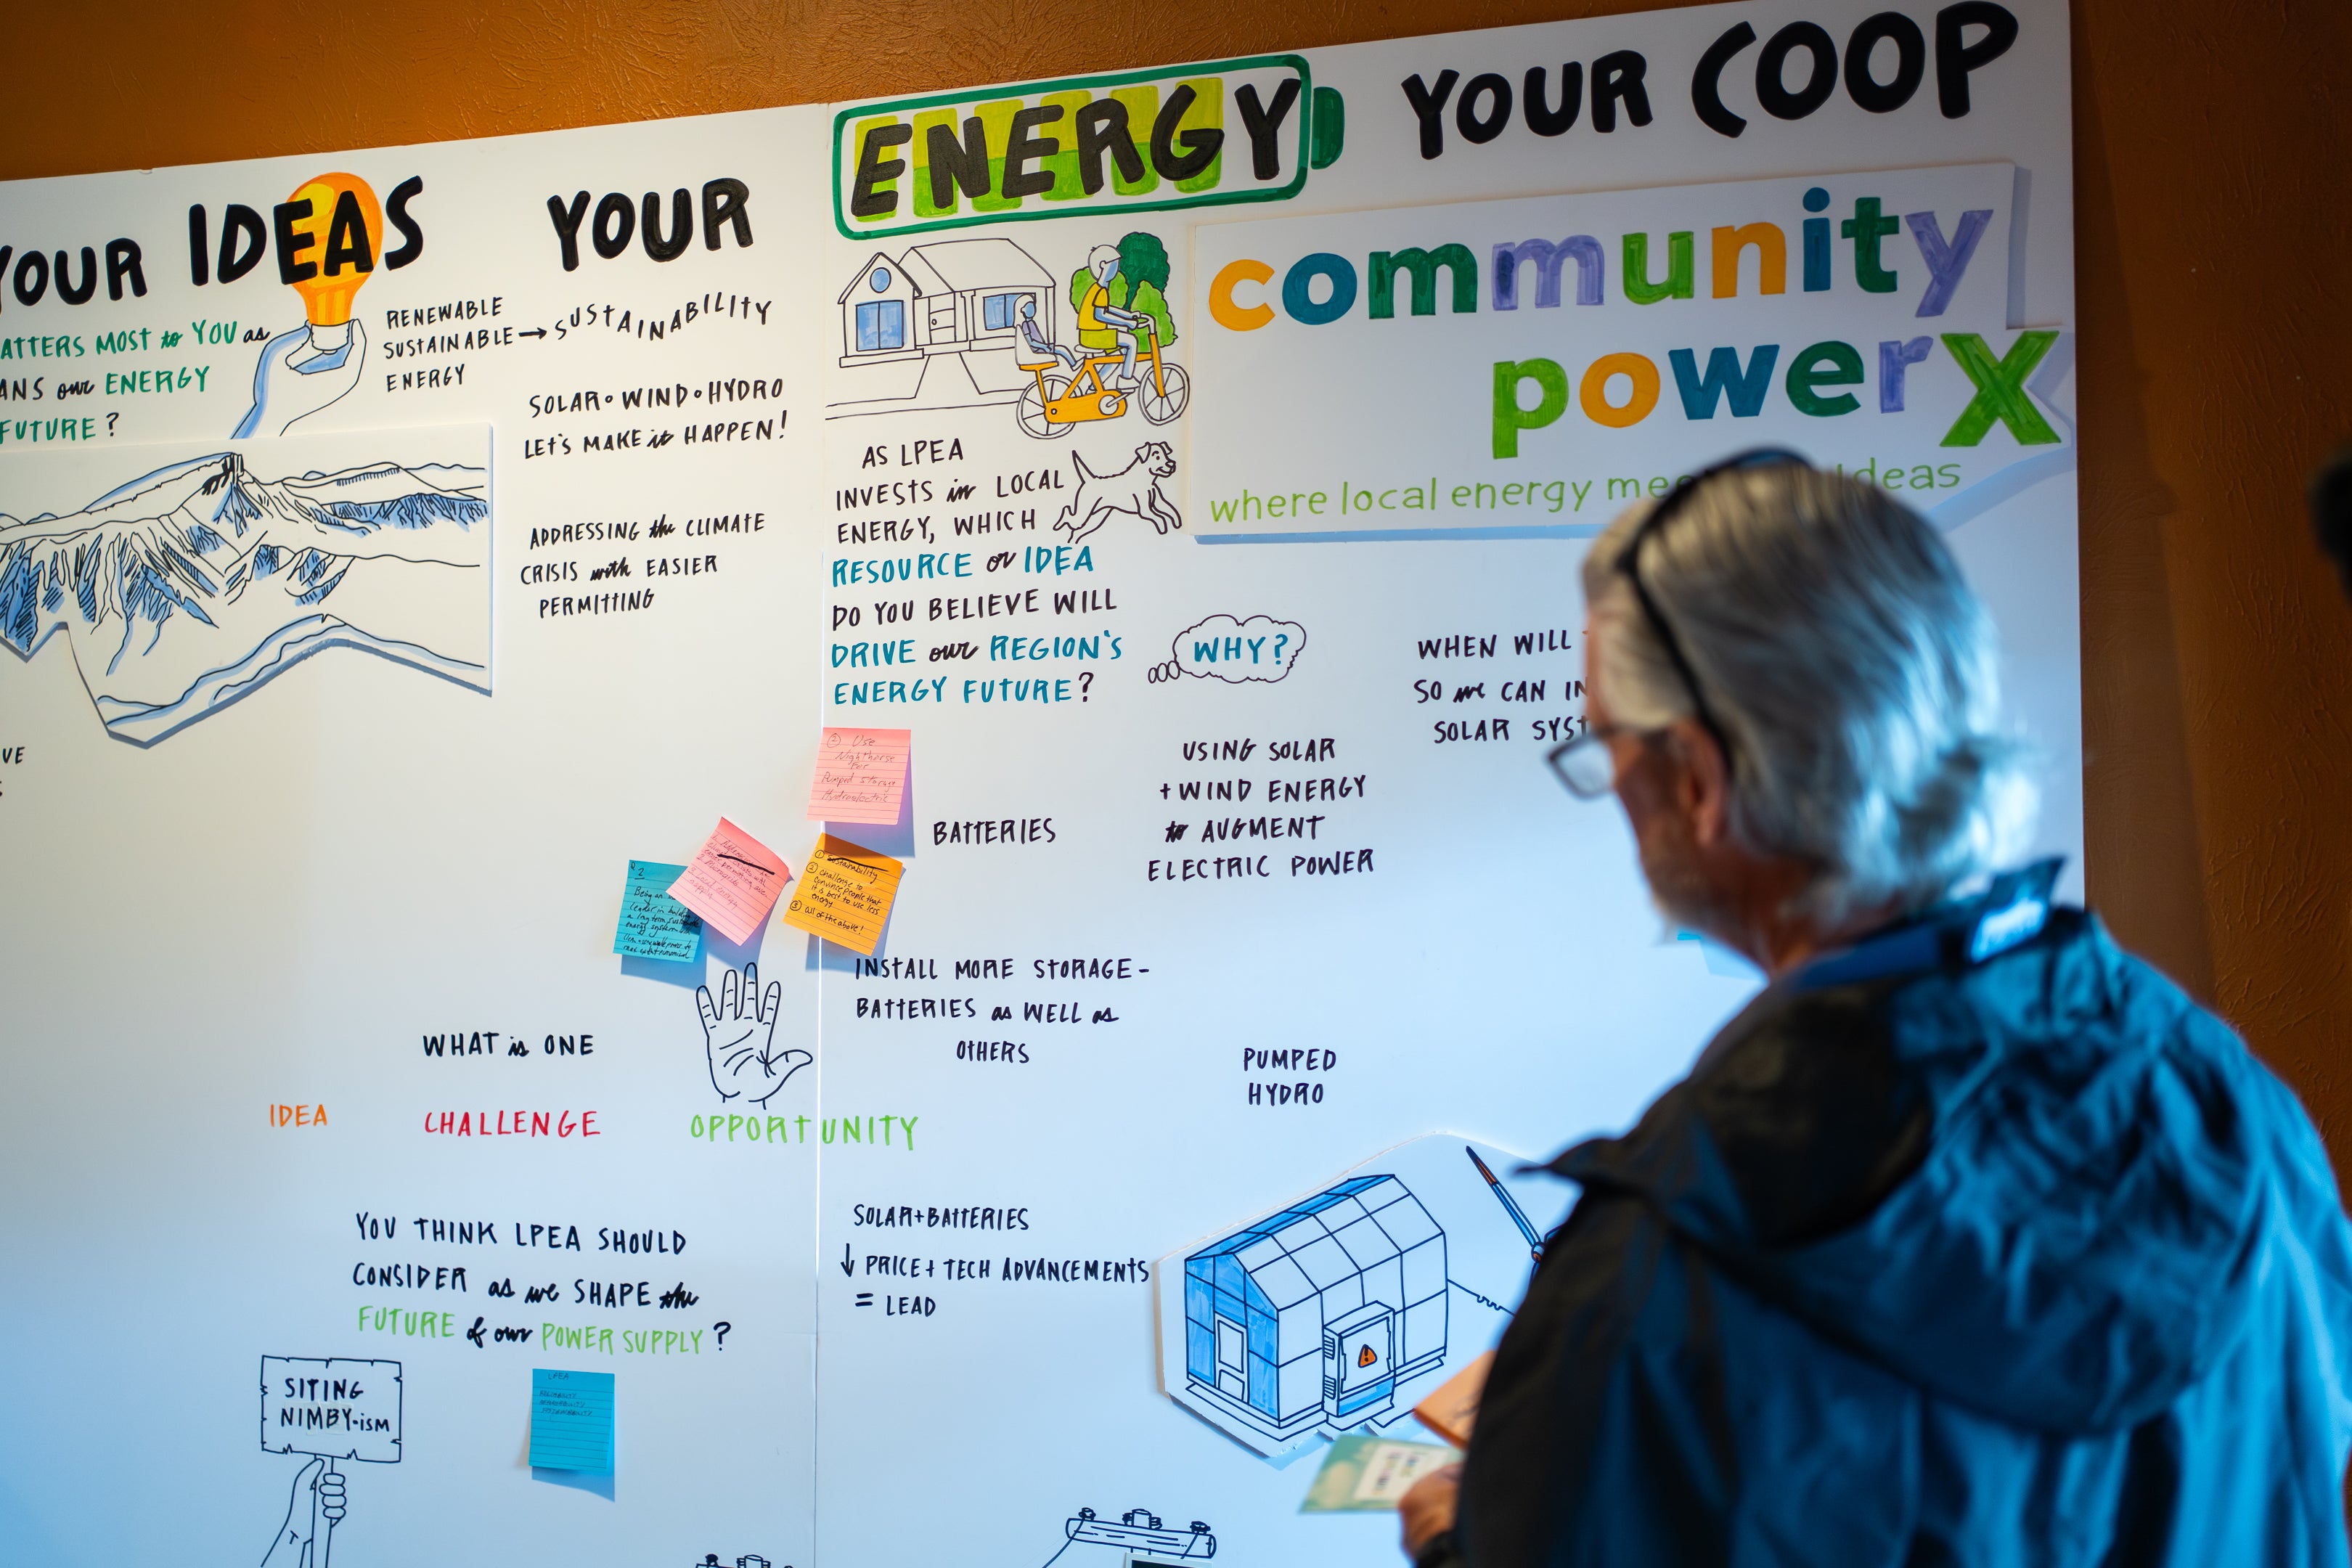 YOUR IDEAS YOUR ENERGY YOUR COOP
ATTERS MOST to YOU as
ANS our ENERGY
FUTURE?
RENEWABLE
SUSTAINABLE → SUSTAINABILITY
ENERGY
SOLAR • WIND • HYDRO
LET'S MAKE it HAPPEN!
ADDRESSING the CLIMATE
CRISIS with EASIER
PERMITTING
VE
community
powerX
where local energy ideas
AS LPEA
INVESTS in LOCAL
ENERGY, WHICH
RESOURCE or IDEA
DO YOU BELIEVE WILL
DRIVE our REGION'S
ENERGY FUTURE?
WHY?
WHEN WILL
SO we CAN
SOLAR
USING SOLAR
+ WIND ENERGY
to AUGMENT
ELECTRIC POWER
② Use
Nighthorse
For
Pumped storage
Hydroelectric
BATTERIES
① Sustainability
② challenge to
convince people that
it is best to use less
energy
③ all of the above!
2
Being an
leader in building
a long term
energy system
INSTALL MORE STORAGE -
BATTERIES as WELL as
OTHERS
PUMPED
HYDRO
WHAT is ONE
IDEA CHALLENGE OPPORTUNITY
YOU THINK LPEA SHOULD
CONSIDER as we SHAPE the
FUTURE of our POWER SUPPLY?
SOLAR + BATTERIES
↓ PRICE + TECH ADVANCEMENTS
= LEAD
SITING
NIMBY-ism
LPEA